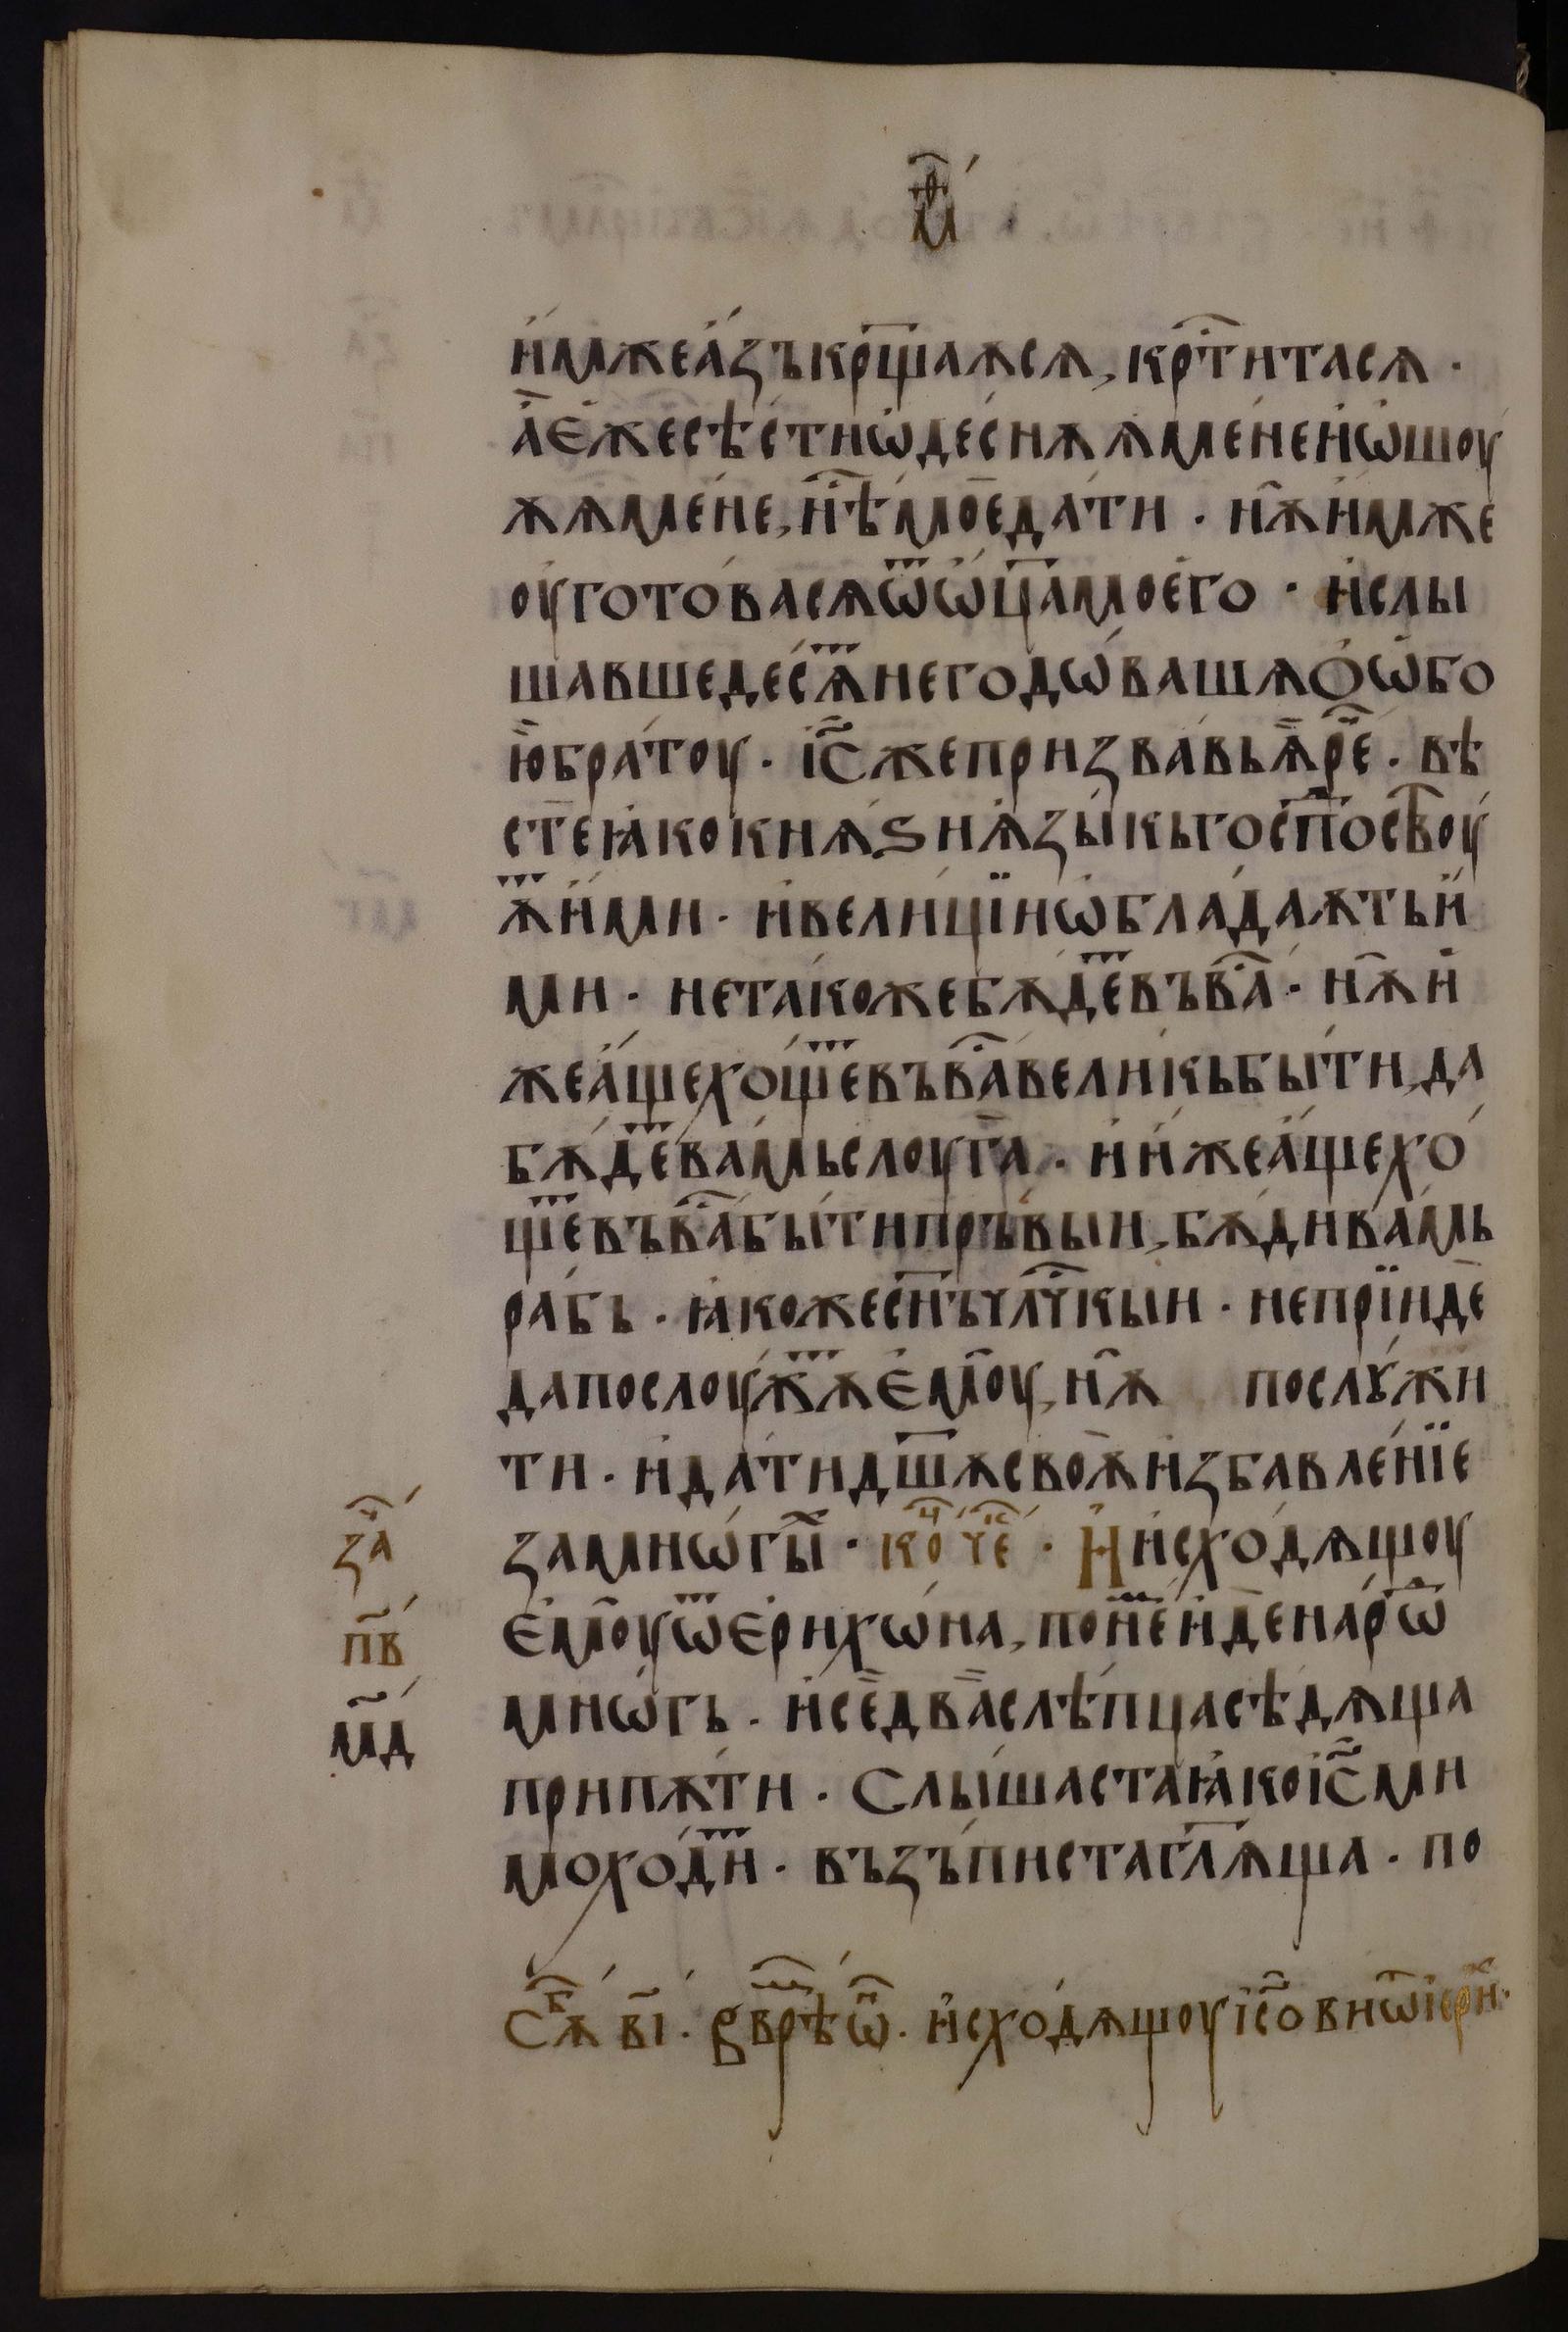 м҃ѳ
и҆мжеа҆́зъкр҃щаѫсѧ, кр҃тⷭ҇итасѧ ·
а҆є҆́жесѣ́стиѡ҆десн́ѫѧмен́еи҆ѡ҆шоу
ѫѧмен́е, нⷭ҇ѣ́мо̄еда́ти · нѫ̑и҆мже
оу҆гото́васѧѿѡ҆ц҃амоег҆о · и҆слы
шавшедес́ѧⷮнегодѡ́вашѧꙩѡ҆бо
ю҆бра́тоу · іс҃жепризва́вьѧ҆̀реⷱ҇ · вѣ
сте̄ꙗ҆кокнѧ́ѕиѧ҆зы́кьгоспⷭ҇оствоу́
ѫⷮи҆ми · и҆вели́цїиѡ҆блада́ѫтьи҆
ми · нета́кожебѫ́деⷮвъваⷭ҇ · нѫ̑и҆
жеа҆́щехо́щеⷮвъваⷭ҇вели́кьбы́ти, да
бѫ́деⷮва́мьслоуга̀ · и҆и҆́жеа҆́щехо́
щеⷮвъваⷭ҇бы́типръ́выи, бѫ́дива́мь
ра́бь · ꙗ҆кожес҃нъчл҃чⷭ҇кыи · непрїи́де̄
дапослоу́жѧⷮє҆мо̑у, нѫ̑ послꙋжи́
ти · и҆да́тид҃шѫсвоѫ̀и҆збавле́нїе
замнѡ́гыⷯ · коⷩ҇ чеⷦ · И҆и҆сходѧ́щоу
є҆мо̑уѿє҆рихѡ́на, по́неⷨи҆́де̄нарѡⷣ
мнѡ́гь · и҆се̑два̀слѣпцасѣдѧ́ща
припѫти́ · Слы́шастаꙗ҆коіс҃ми
мохо́диⷮ · възъпи́стаг҃лѧща · по
заⷱ҇
п҃в
м҃д
Сѫⷠ҇ в҃і · врѣⷨѡⷩ · и҆сходѧ́щоуіс҃овиѿі҆ериⷯ ·